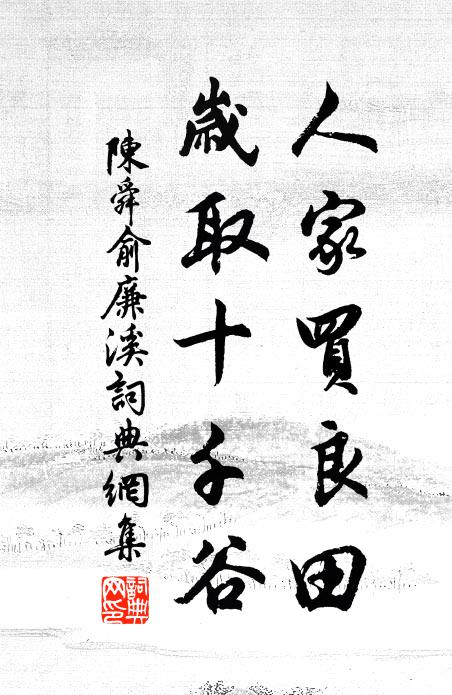 人家買良田
歲取十千谷
陳舜俞廉溪詞典網集
詞典网印